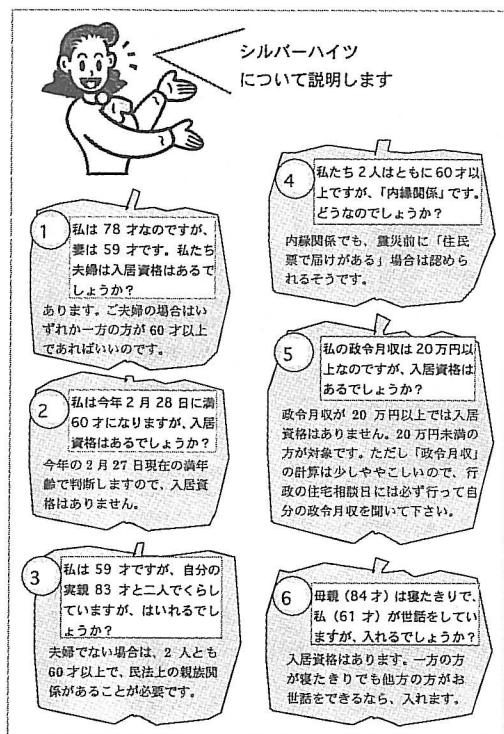 シルバーハイツ
について説明します
1
私は 78 才なのですが、
妻は 59 才です。私たち
夫婦は入居資格はあるで
しょうか?
あります。ご夫婦の場合はい
ずれか一方の方が 60 才以上
であればいいのです。
2
私は今年 2 月 28 日に満
60 才になりますが、入居
資格はあるでしょうか?
今年の 2 月 27 日現在の満年
齢で判断しますので、入居資
格はありません。
3
私は 59 才ですが、自分の
実親 83 才と二人でくらし
ていますが、はいれるでし
ょうか?
夫婦でない場合は、2 人とも
60 才以上で、民法上の親族関
係があることが必要です。
4
私たち 2 人はともに 60 才以
上ですが、「内縁関係」です。
どうなのでしょうか?
内縁関係でも、震災前に「住民
票で届けがある」場合は認めら
れるそうです。
5
私の政令月収は 20 万円以
上なのですが、入居資格は
あるでしょうか?
政令月収が 20 万円以上では入居
資格はありません。20 万円未満の
方が対象です。ただし「政令月収」
の計算は少しややこしいので、行
政の住宅相談日には必ず行って自
分の政令月収を聞いて下さい。
6
母親(84 才)は寝たきりで、
私(61 才)が世話をしてい
ますが、入れるでしょうか?
入居資格はあります。一方の方
が寝たきりでも他方の方がお
世話をできるなら、入れます。